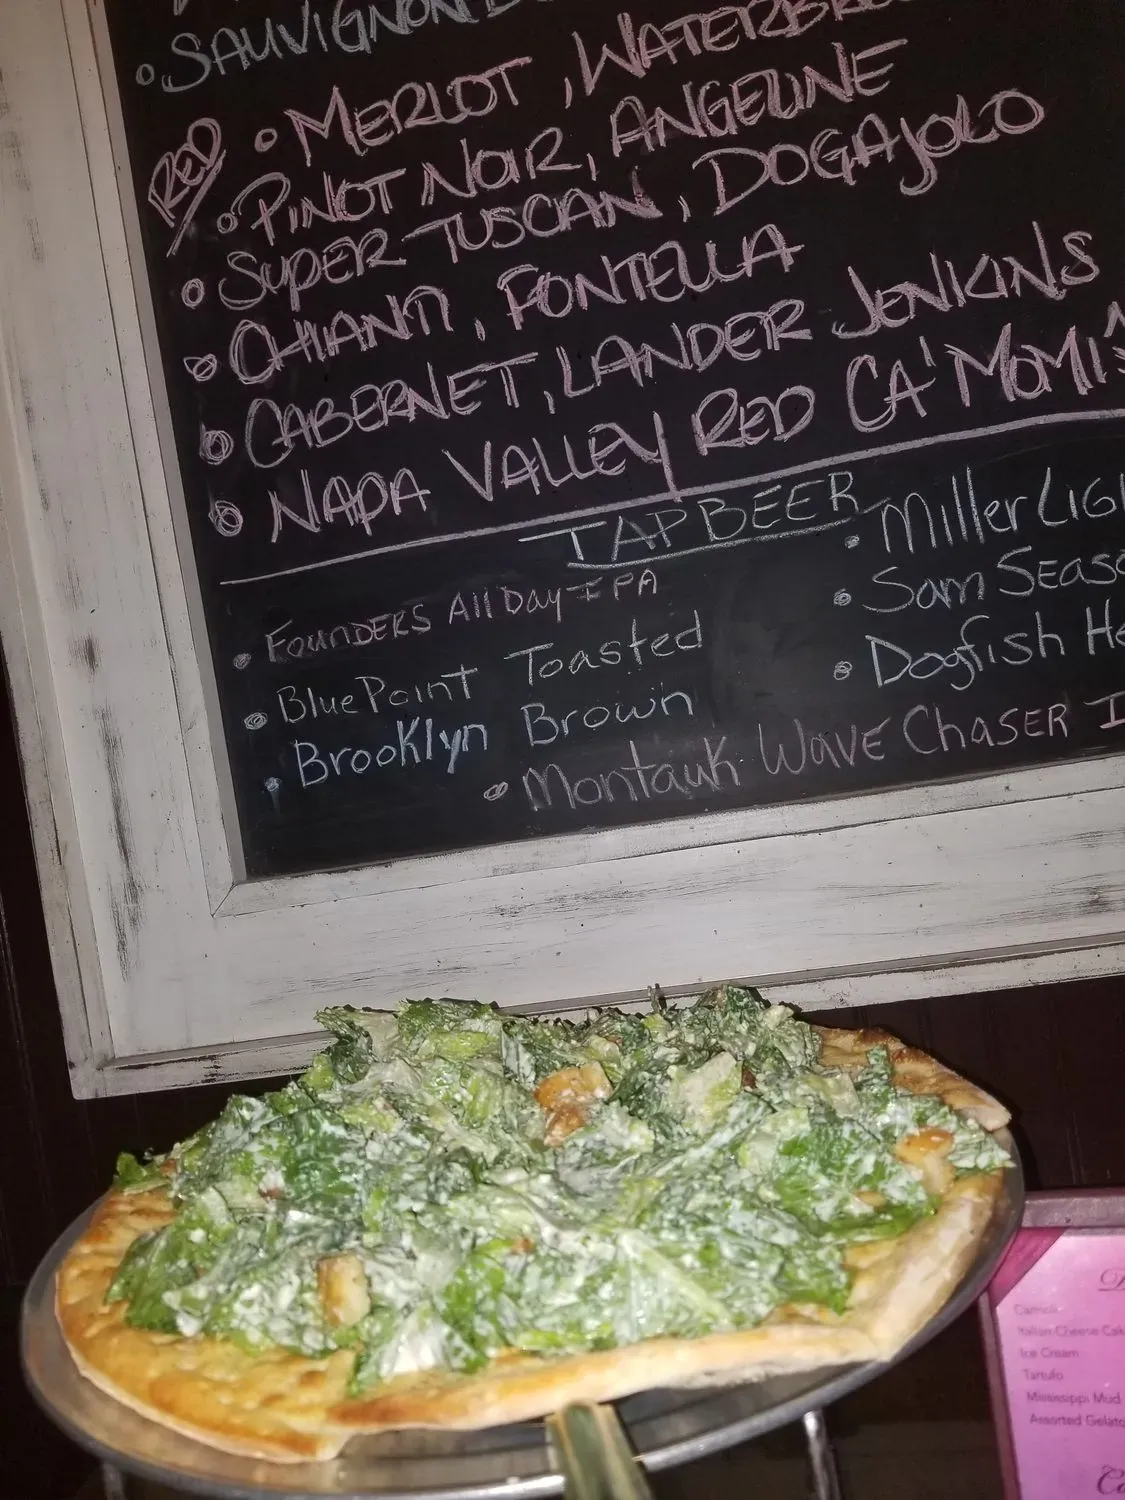 SAUVIGNON
RED
MERLOT,
PINOT NOIR, ANGELINE
SUPER TUSCAN, DOGAJOLO
CHIANTI, FONTELLA
CABERNET, LANDER JENKINS
NAPA VALLEY RED CA'MOMI
TAP BEER
FOUNDERS All Day IPA
BluePoint Toasted
Brooklyn Brown
Miller LIG
Sam SEASO
Dogfish He
Montauk WAVE CHASER I
Italian Cheese Cak
Ice Cream
Tartufo
Mississippi Mud
Assorted Gelato